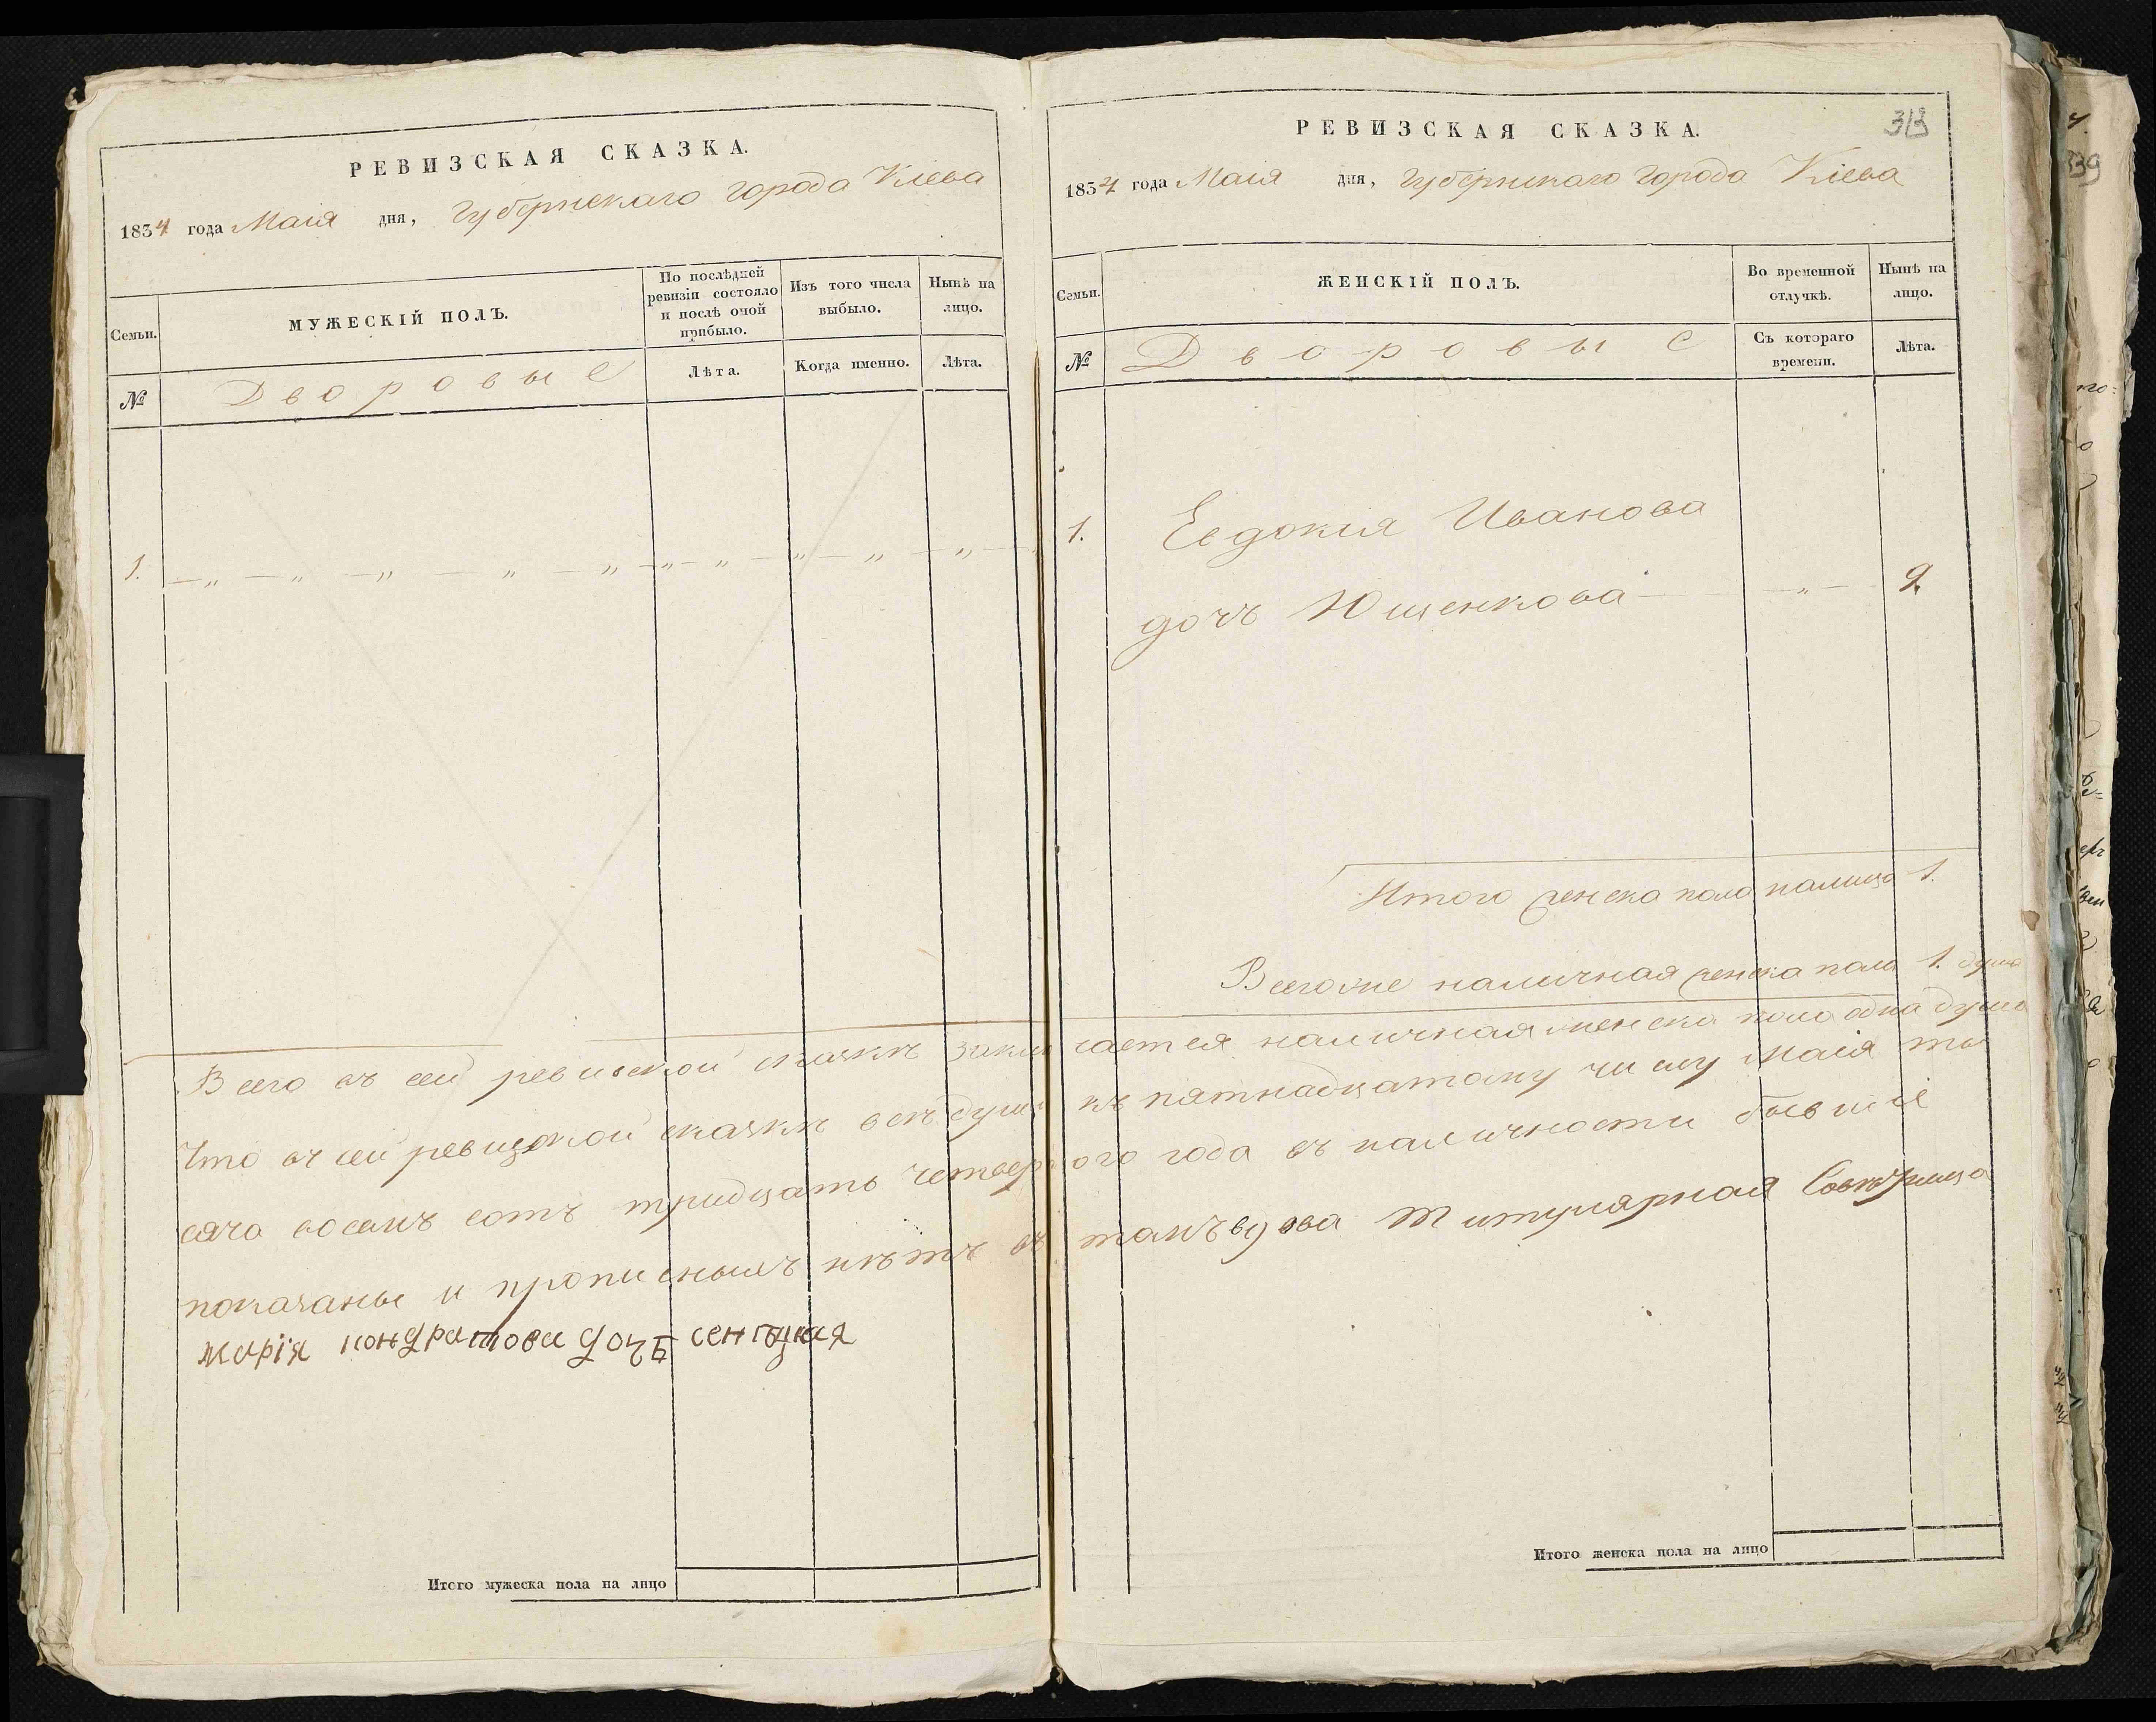 РЕВИЗСКАЯ СКАЗКА.
1834 года Маія дня, Губернскаго города Кіева
Семьи.
МУЖЕСКІЙ ПОЛЪ.
По послѣдней
ревизіи состояло
и послѣ оной
прибыло.
Изъ того числа
выбыло.
Нынѣ на
лицо.
№
Дворовые
Лѣта.
Когда именно.
Лѣта.
1. — „ — „ — „ — „ — „ — „ — „ — „ — „ — „ —
313
РЕВИЗСКАЯ СКАЗКА.
1834 года Маія дня, Губернскаго города Кіева
Семьи.
ЖЕНСКІЙ ПОЛЪ.
Во временной
отлучкѣ.
Нынѣ на
лицо.
№
Дворовые
Съ котораго
времени.
Лѣта.
1. Евдокия Иванова
дочь Ющенкова — „ — 9.
Итого женска пола налицо 1.
Всегоже наличная женска пола 1. душа
Всего въ сей ревиской сказкѣ заключается наличная женска пола одна душа
Что въ сей ревизской сказкѣ всѣ души къ пятнадцатому числу Маія ты
сяча восемъ сотъ тридцать четвертого года въ наличности бывшіе
показаны и прописныхъ нѣтъ въ томъ вдова титулярная Совѣтница
марія кондратова дочь
Итого мужеска пола на лицо
Итого женска пола на лицо
339